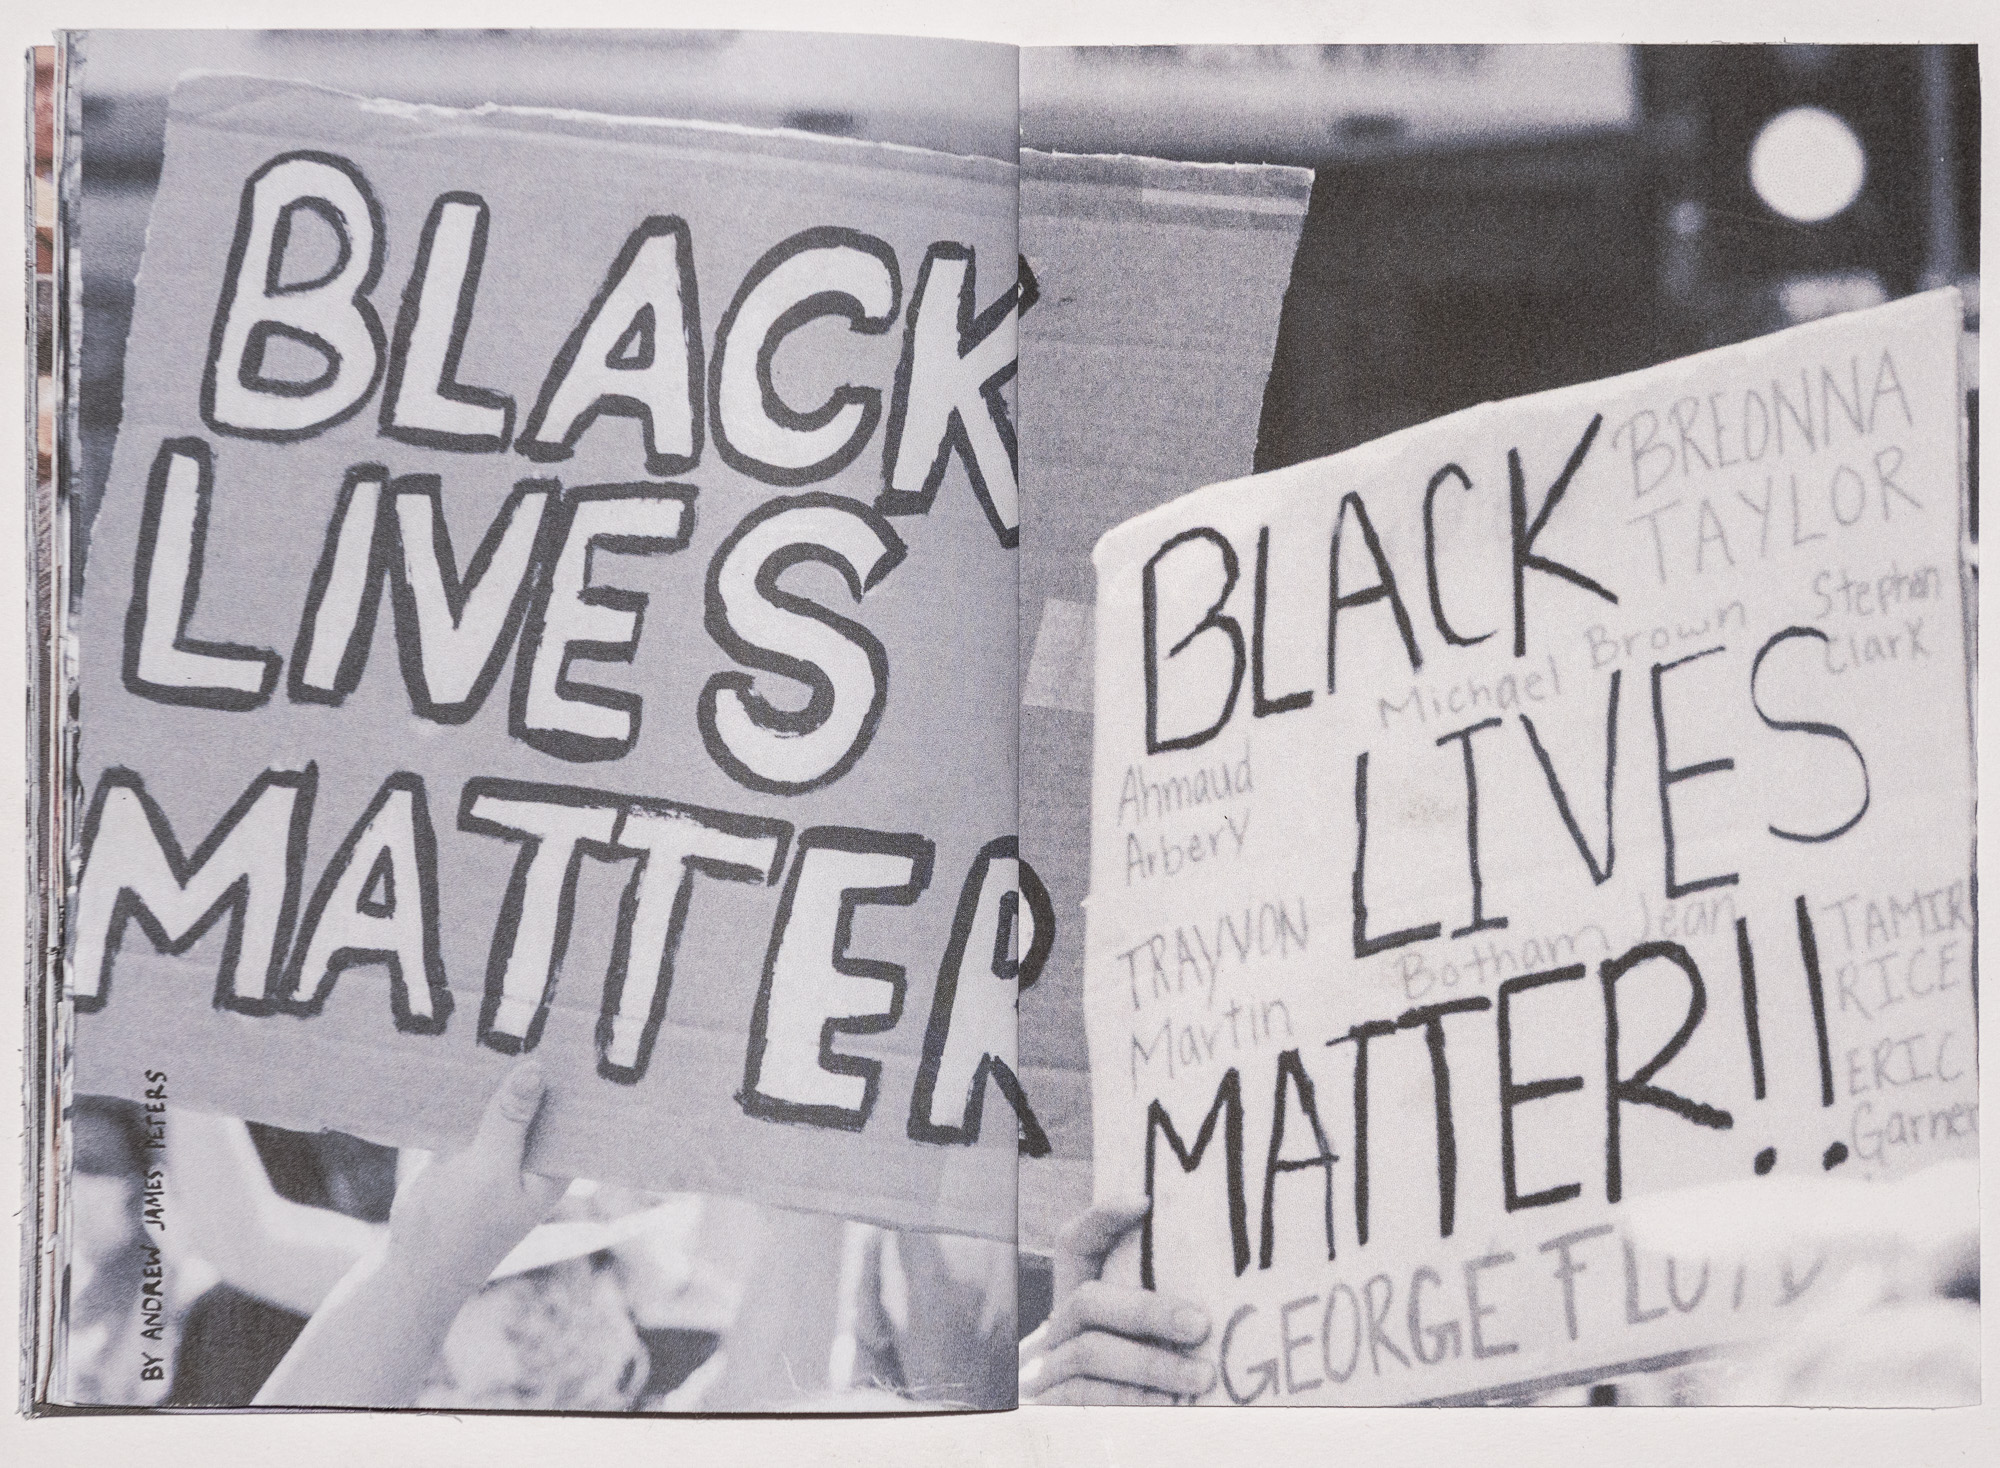 BLACK
LIVES
MATTER
BY ANDREW JAMES PETERS
BREONNA
TAYLOR
BLACK
Stephon
Clark
Michael Brown
LIVES
Ahmaud
Arbery
TRAYVON
Martin
Botham Jean
TAMIR
RICE
MATTER!!
ERIC
Garner
GEORGE